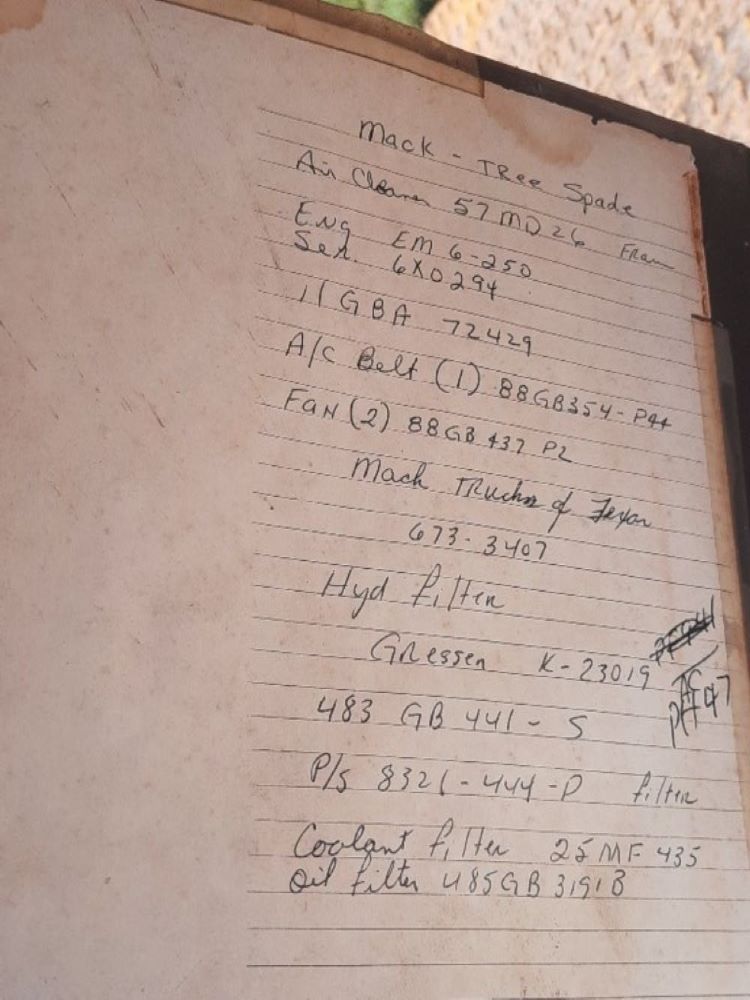 Mack - Tree Spade
Air Cleaner 57MD26 Fram
Eng EM 6-250
Ser. 6X0294
11GBA 72429
A/C Belt (1) 88GB354-P44
Fan (2) 88GB 437 P2
Mack Trucks of Texas
673-3407
Hyd filter
Gressen K-23019
483 GB 441-S
P/S 8321-444-P filter
Coolant filter 25MF 435
Oil filter 485GB3191B